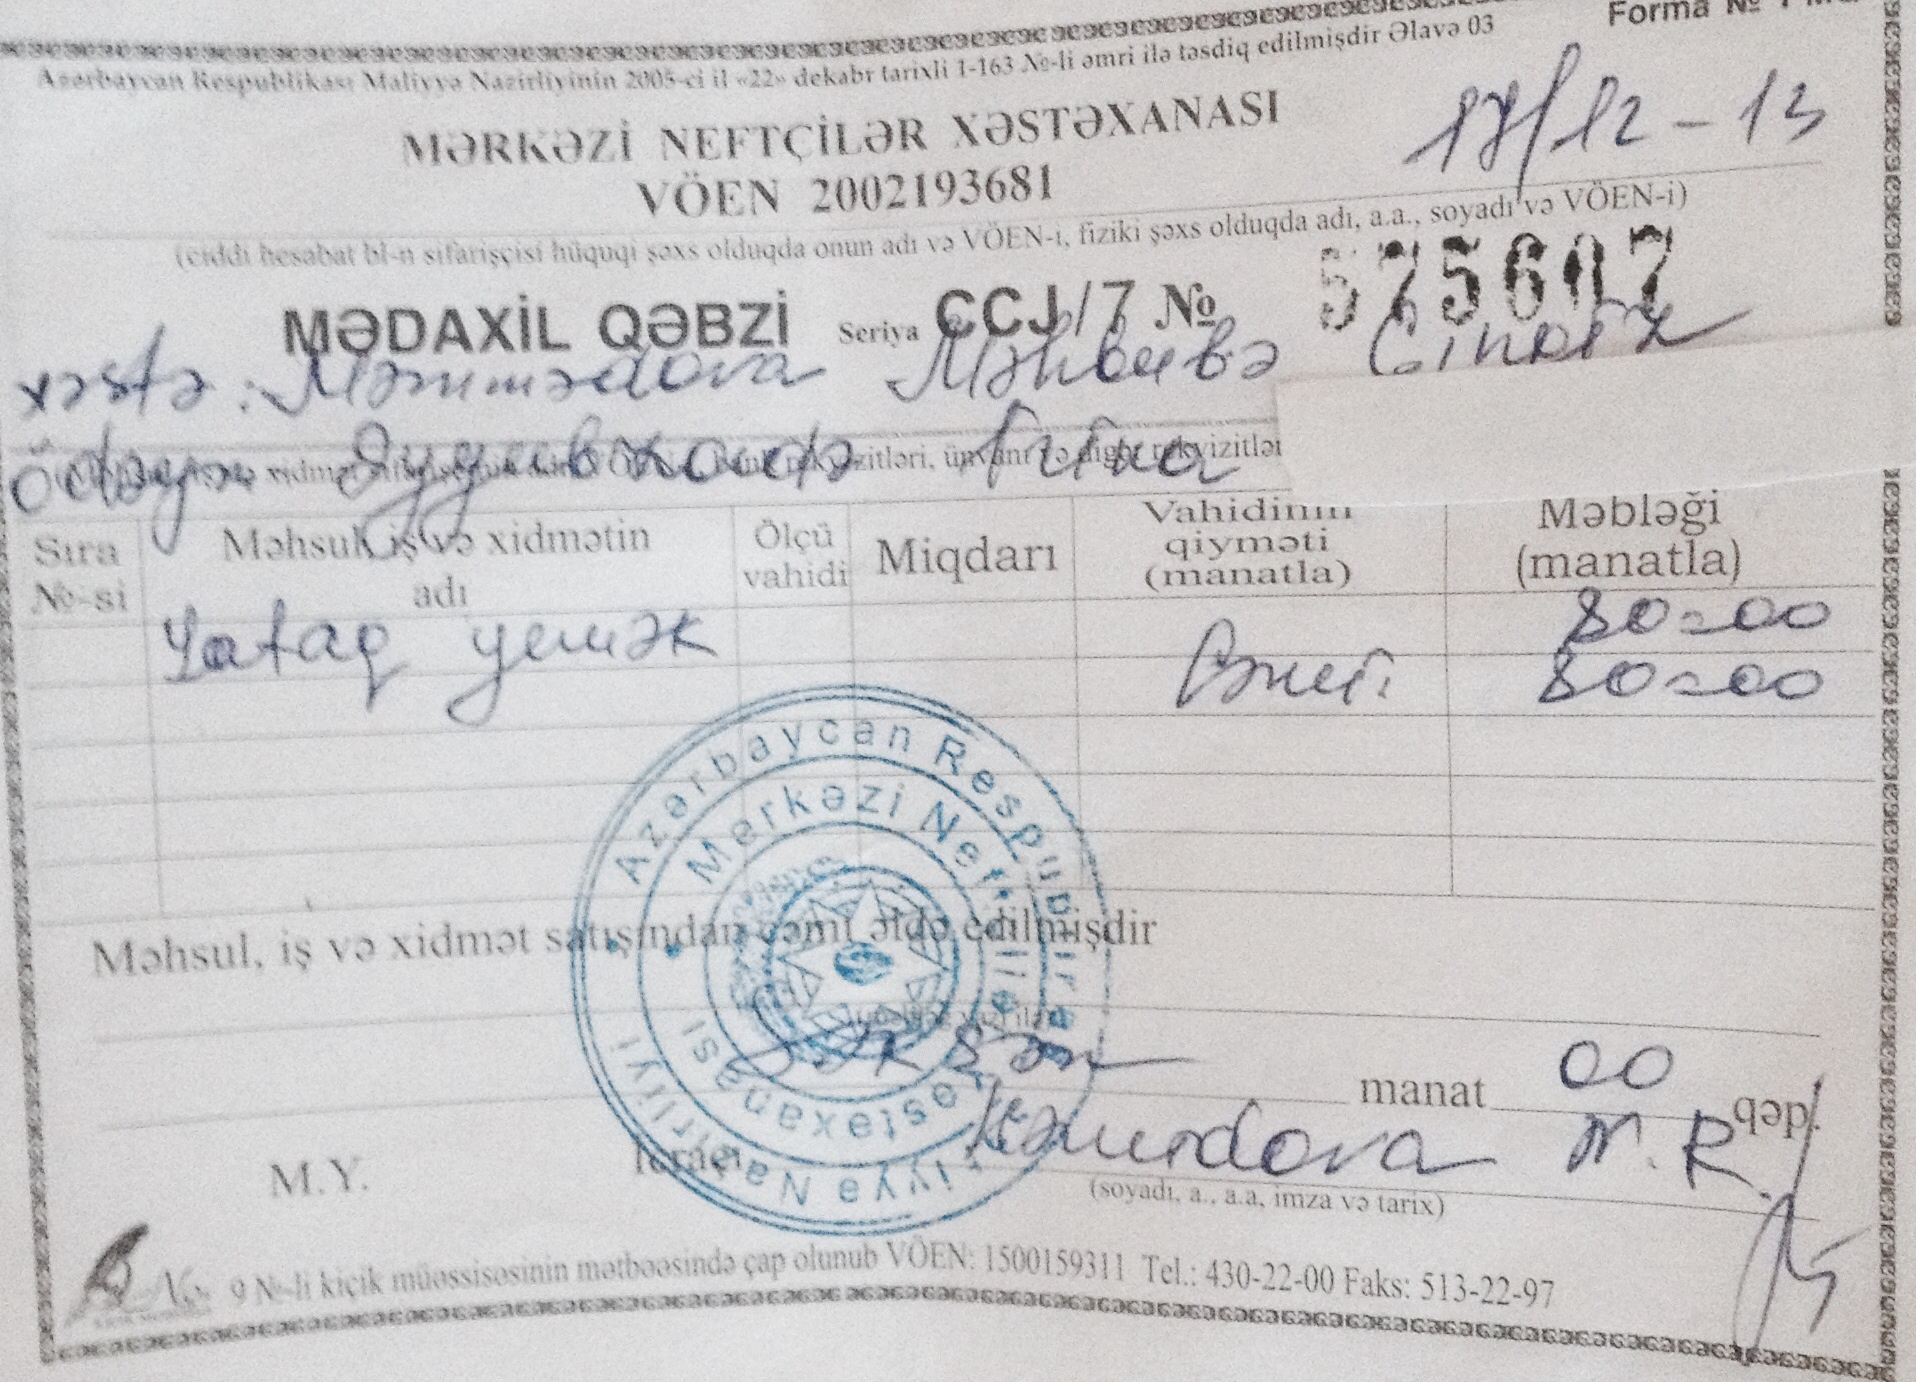 Forma №
Azərbaycan Respublikası Maliyyə Nazirliyinin 2005-ci il «22» dekabr tarixli 1-163 №-li əmri ilə təsdiq edilmişdir Əlavə 03
MƏRKƏZİ NEFTÇİLƏR XƏSTƏXANASI
17/12-13
VÖEN 2002193681
(ciddi hesabat bl-n sifarişçisi hüquqi şəxs olduqda onun adı və VÖEN-i, fiziki şəxs olduqda adı, a.a., soyadı və VÖEN-i)
MƏDAXİL QƏBZİ Seriya CCJ/7 № 575607
xəstə: Məmmədova Məhbubə
Ödəyən
rekvizitləri, ünvanı və digər rekvizitləri
Sıra №-si
Məhsul, iş və xidmətin adı
Ölçü vahidi
Miqdarı
Vahidinin qiyməti (manatla)
Məbləği (manatla)
Yataq yemək 80=00
Cəmi: 80=00
Məhsul, iş və xidmət satışından cəmi əldə edilmişdir
səksən manat 00 qəp.
M.Y.
İcraçı
N. R.
(soyadı, a., a.a, imza və tarix)
Azərbaycan Respublikası Maliyyə Nazirliyi
Mərkəzi Neftçilər Xəstəxanası
9 №-li kiçik müəssisəsinin mətbəəsində çap olunub VÖEN: 1500159311 Tel.: 430-22-00 Faks: 513-22-97